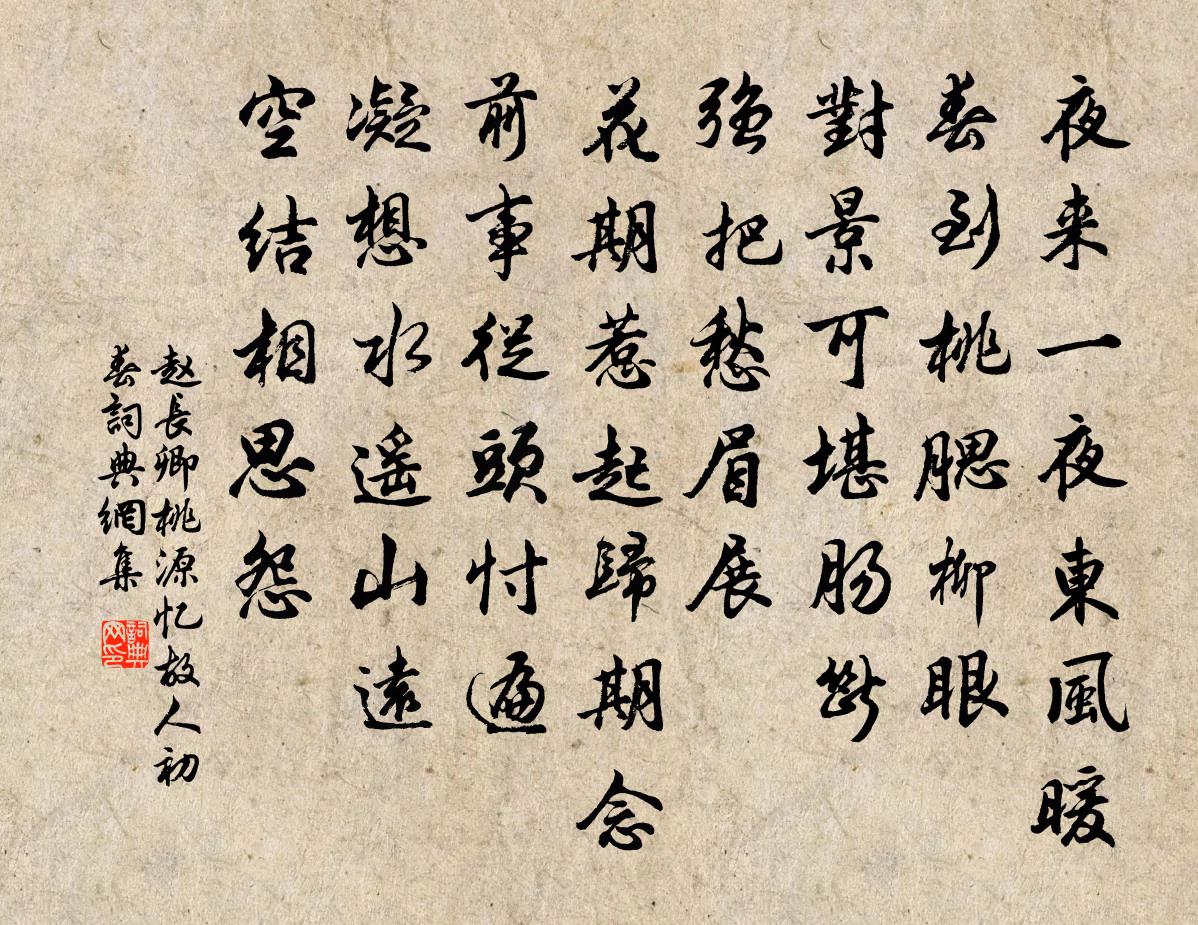 夜来一夜東風暖
春到桃腮柳眼
對景可堪肠斷
強把愁眉展
花期惹起歸期念
前事從頭忖遍
凝想水遥山遠
空结相思怨
赵長卿桃源忆故人初
春詞典網集
詞典
网印